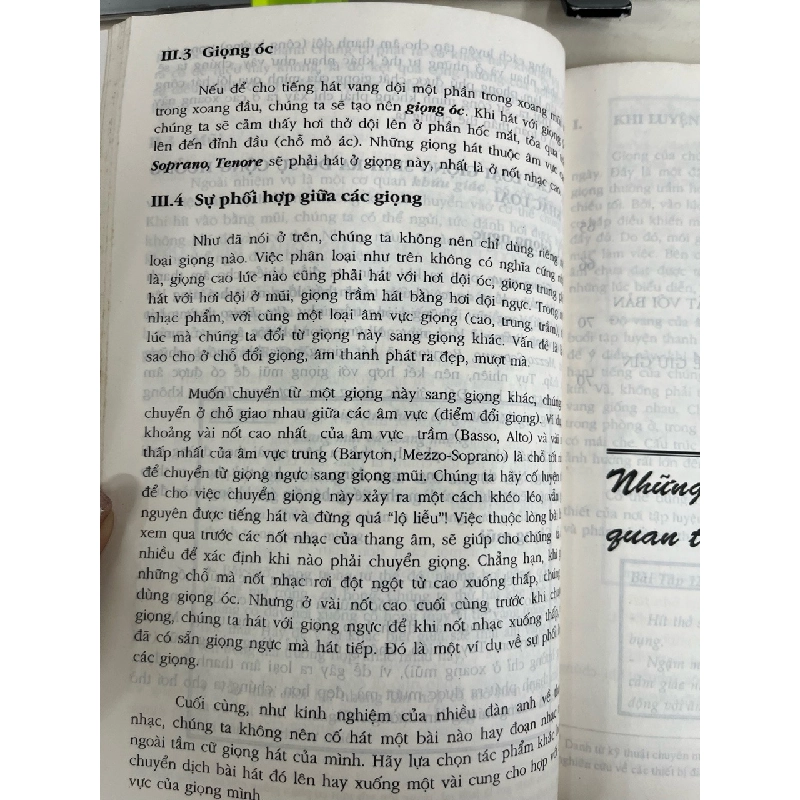 III.3 Giọng óc
Nếu để cho tiếng hát vang dội một phần trong xoang mũi
trong xoang đầu, chúng ta sẽ tạo nên giọng óc. Khi hát với giọng
chúng ta sẽ cảm thấy hơi thở dội lên ở phần hốc mắt, tỏa qua
lên đến đỉnh đầu (chỗ mỏ ác). Những giọng hát thuộc âm vực
Soprano, Tenore sẽ phải hát ở giọng này, nhất là ở nốt nhạc cao.
III.4 Sự phối hợp giữa các giọng
Như đã nói ở trên, chúng ta không nên chỉ dùng riêng
loại giọng nào. Việc phân loại như trên không có nghĩa cứng
là, giọng cao lúc nào cũng phải hát với hơi dội óc, giọng trung
hát với hơi dội ở mũi, giọng trầm hát bằng hơi dội ngực. Trong
nhạc phẩm, với cùng một loại âm vực giọng (cao, trung, trầm),
lúc mà chúng ta đổi từ giọng này sang giọng khác. Vấn đề là
sao cho ở chỗ đổi giọng, âm thanh phát ra đẹp, mượt mà.
Muốn chuyển từ một giọng này sang giọng khác, chúng
chuyển ở chỗ giao nhau giữa các âm vực (điểm đổi giọng). Ví dụ
khoảng vài nốt cao nhất của âm vực trầm (Basso, Alto) và vài
thấp nhất của âm vực trung (Baryton, Mezzo-Soprano) là chỗ tốt
để chuyển từ giọng ngực sang giọng mũi. Chúng ta hãy cố luyện
để cho việc chuyển giọng này xảy ra một cách khéo léo, vẫn
nguyên được tiếng hát và đừng quá "lộ liễu"! Việc thuộc lòng bài
xem qua trước các nốt nhạc của thang âm, sẽ giúp cho chúng ta
nhiều để xác định khi nào phải chuyển giọng. Chẳng hạn, khi
những chỗ mà nốt nhạc rơi đột ngột từ cao xuống thấp, chúng
dùng giọng óc. Nhưng ở vài nốt cao cuối cùng trước khi
giọng, chúng ta hát với giọng ngực để khi nốt nhạc xuống thấp,
đã có sẵn giọng ngực mà hát tiếp. Đó là một ví dụ về sự phối
các giọng.
Cuối cùng, như kinh nghiệm của nhiều đàn anh về
nhạc, chúng ta không nên cố hát một bài nào hay đoạn nhạc
ngoài tầm cữ giọng hát của mình. Hãy lựa chọn tác phẩm khác
chuyển dịch bài hát đó lên hay xuống một vài cung cho hợp với
vực của giọng mình
Những
quan t